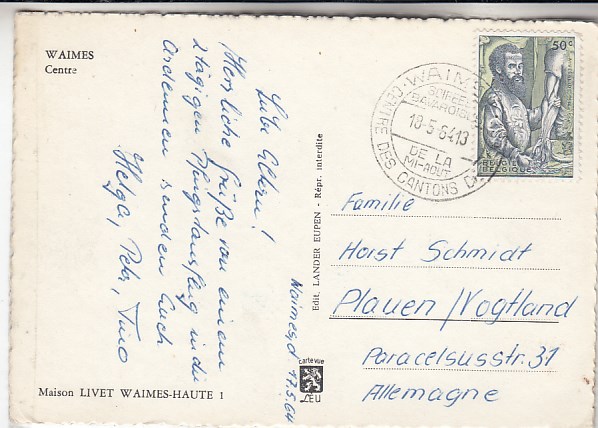 WAIMES
Centre
Liebe Eltern!
Herzliche Grüße von einem
2tägigen Pfingstausflug in die
Ardennen senden Euch
Helga, Peter, Timo
Waimes, d. 17.5.64
Maison LIVET WAIMES-HAUTE 1
Edit. LANDER EUPEN - Répr. interdite
carte vue
LEU
WAIMES
SOIREE
BAVAROISE
18-5-64 13
DE LA
MI-AOUT
CENTRE DES CANTONS DE
50c
BELGIE
BELGIQUE
Familie
Horst Schmidt
Plauen /Vogtland
Paracelsusstr. 31
Allemagne